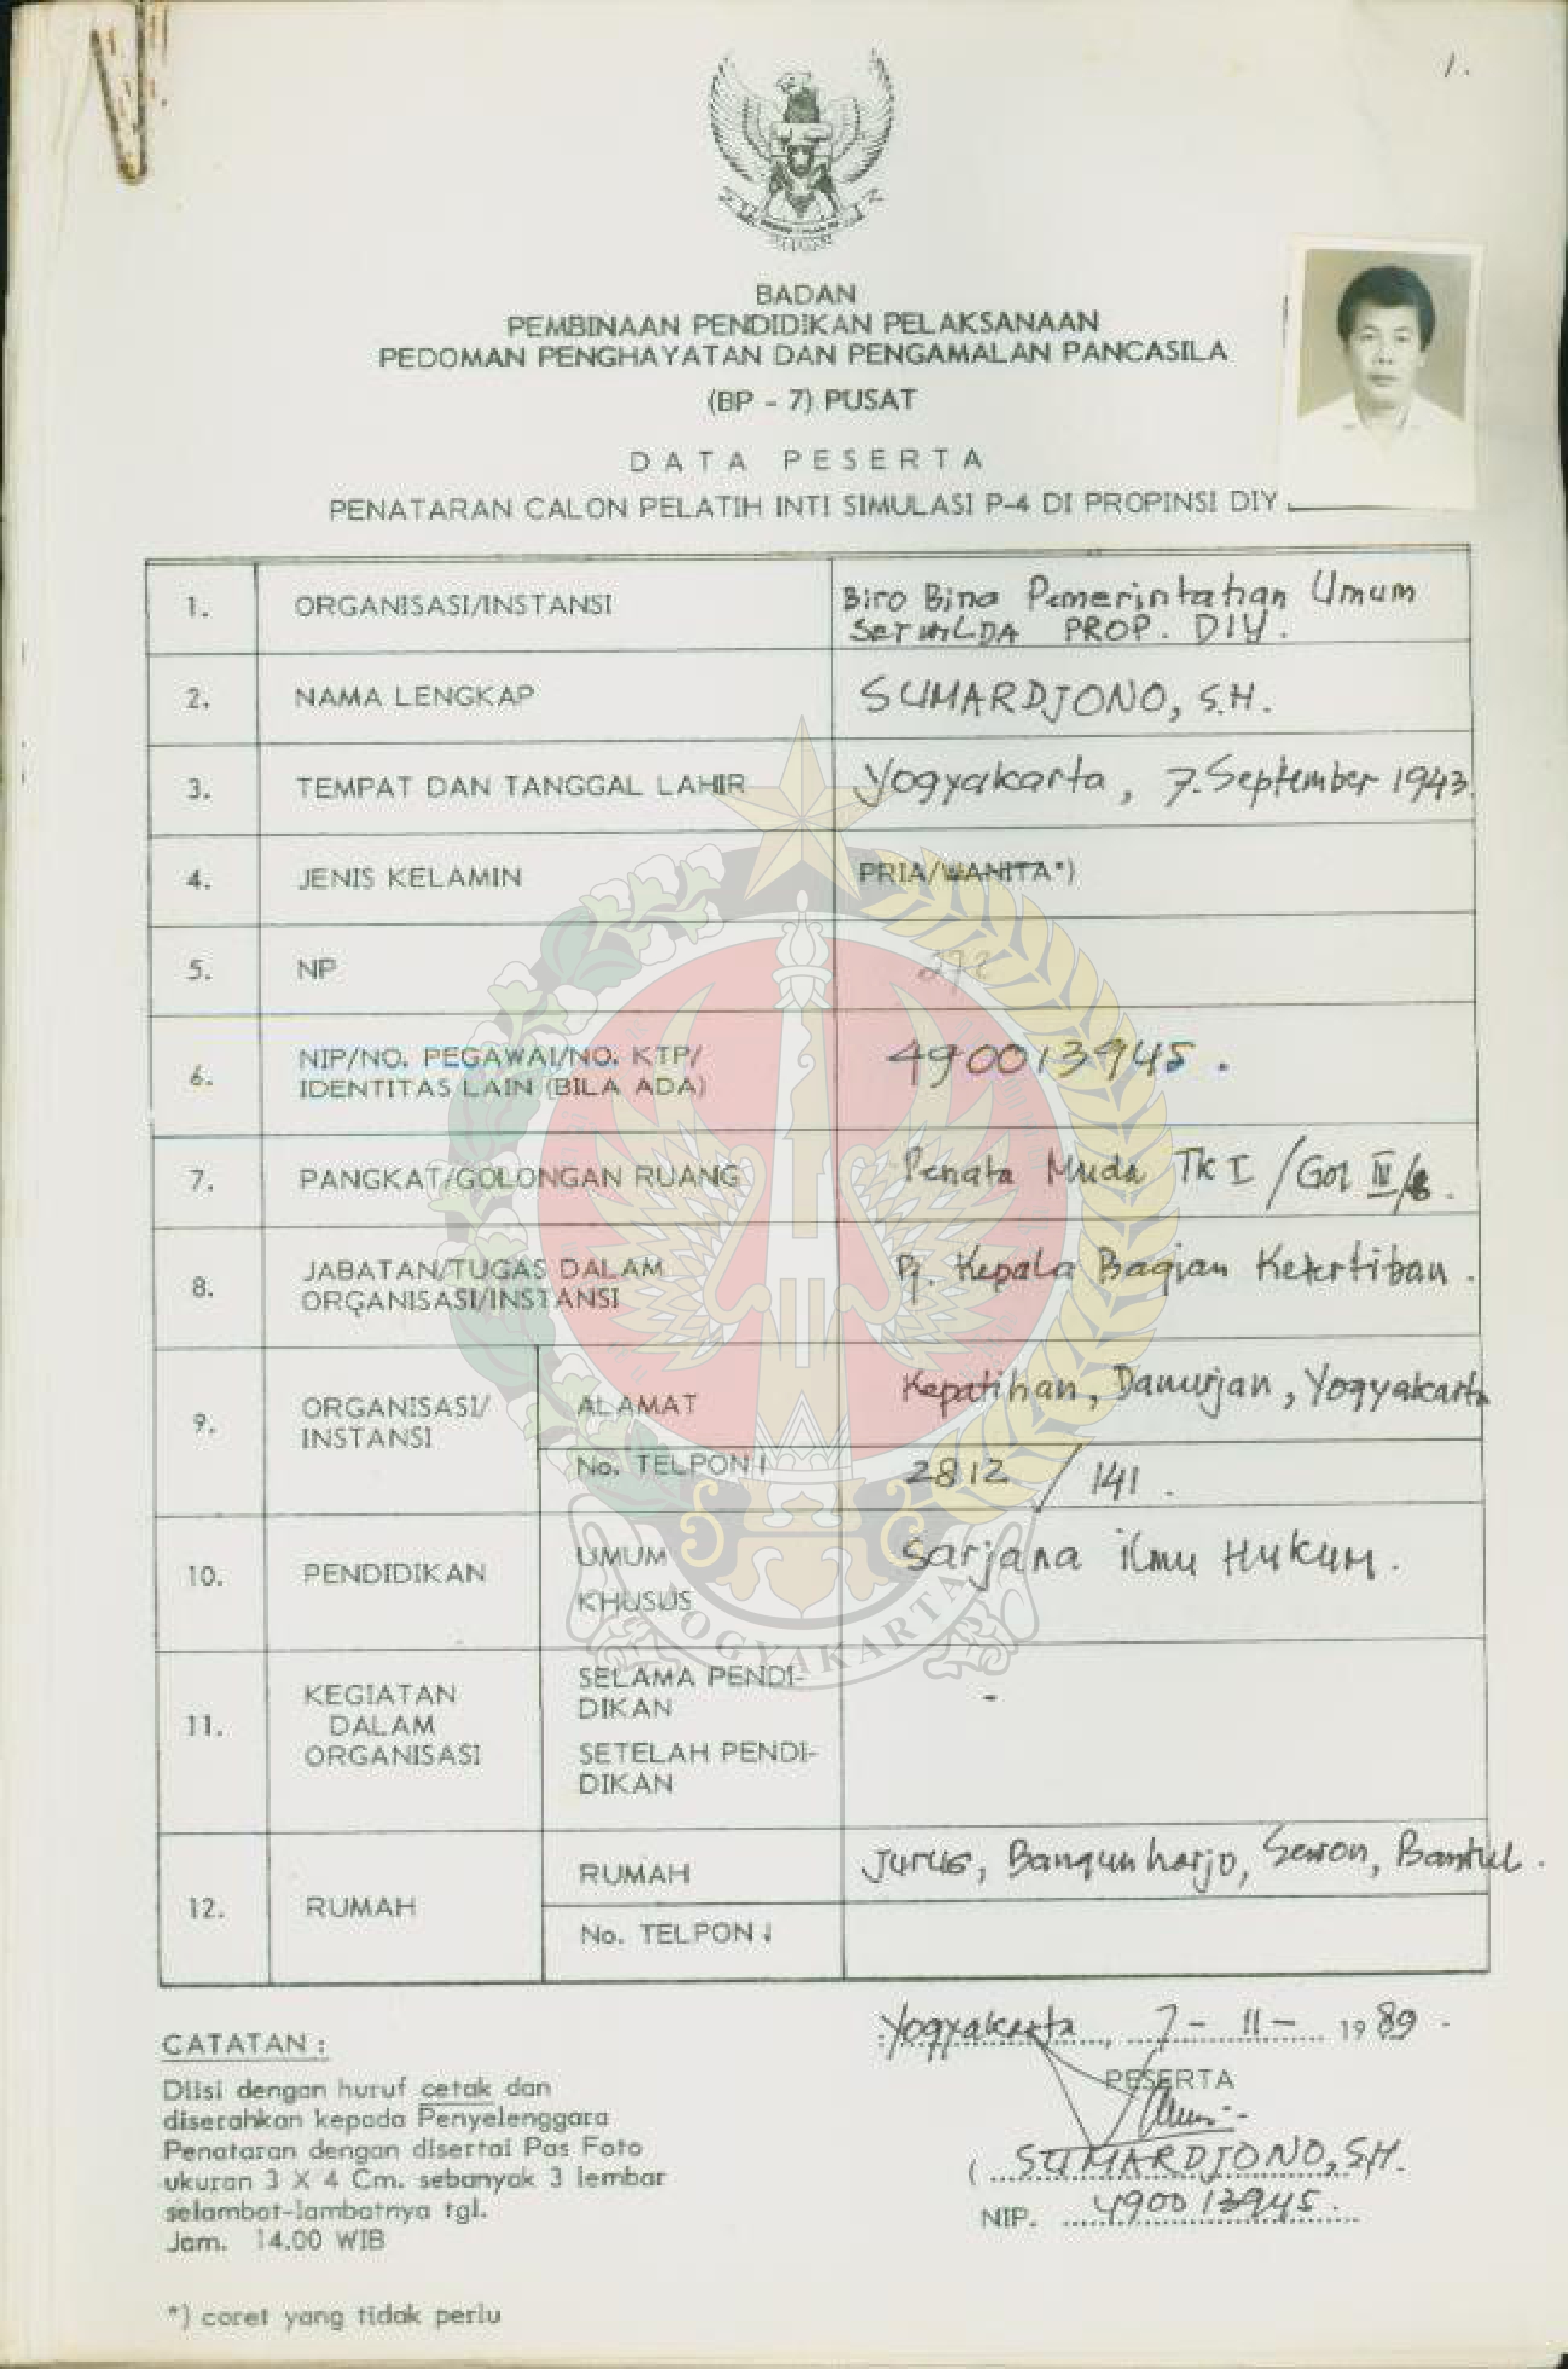 1.
BADAN
PEMBINAAN PENDIDIKAN PELAKSANAAN
PEDOMAN PENGHAYATAN DAN PENGAMALAN PANCASILA
(BP - 7) PUSAT
DATA PESERTA
PENATARAN CALON PELATIH INTI SIMULASI P-4 DI PROPINSI DIY
1. ORGANISASI/INSTANSI Biro Bina Pemerintahan Umum
SETWILDA PROP. DIY.
2. NAMA LENGKAP SUMARDJONO, S.H.
3. TEMPAT DAN TANGGAL LAHIR Yogyakarta, 7. September 1943.
4. JENIS KELAMIN PRIA/WANITA*)
5. NP
6. NIP/NO. PEGAWAI/NO. KTP/
IDENTITAS LAIN (BILA ADA) 490013945.
7. PANGKAT/GOLONGAN RUANG Penata Muda Tk I / Gol
8. JABATAN/TUGAS DALAM
ORGANISASI/INSTANSI Pj. Kepala Bagian Ketertiban.
9. ORGANISASI/
INSTANSI
ALAMAT Kepatihan, Danurjan, Yogyakarta
No. TELPON 2812 / 141.
10. PENDIDIKAN
UMUM Sarjana ilmu Hukum.
KHUSUS
11. KEGIATAN
DALAM
ORGANISASI
SELAMA PENDI-
DIKAN -
SETELAH PENDI-
DIKAN
12. RUMAH
RUMAH Jurug, Bangunharjo, Sewon, Bantul.
No. TELPON
YOGYAKARTA
Yogyakarta, 7 - 11 - 1989
PESERTA
(SUMARDJONO, S.H.
NIP. 490013945.
CATATAN :
Diisi dengan huruf cetak dan
diserahkan kepada Penyelenggara
Penataran dengan disertai Pas Foto
ukuran 3 X 4 Cm. sebanyak 3 lembar
selambat-lambatnya tgl.
Jam. 14.00 WIB
*) coret yang tidak perlu